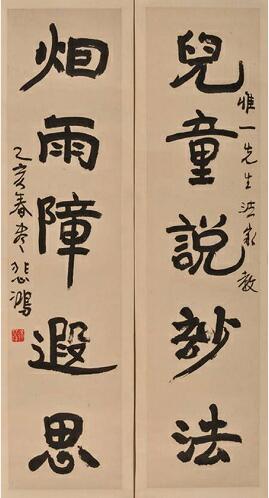 兒童說妙法
惟一先生法家教
烟雨障遐思
乙亥春尽悲鴻